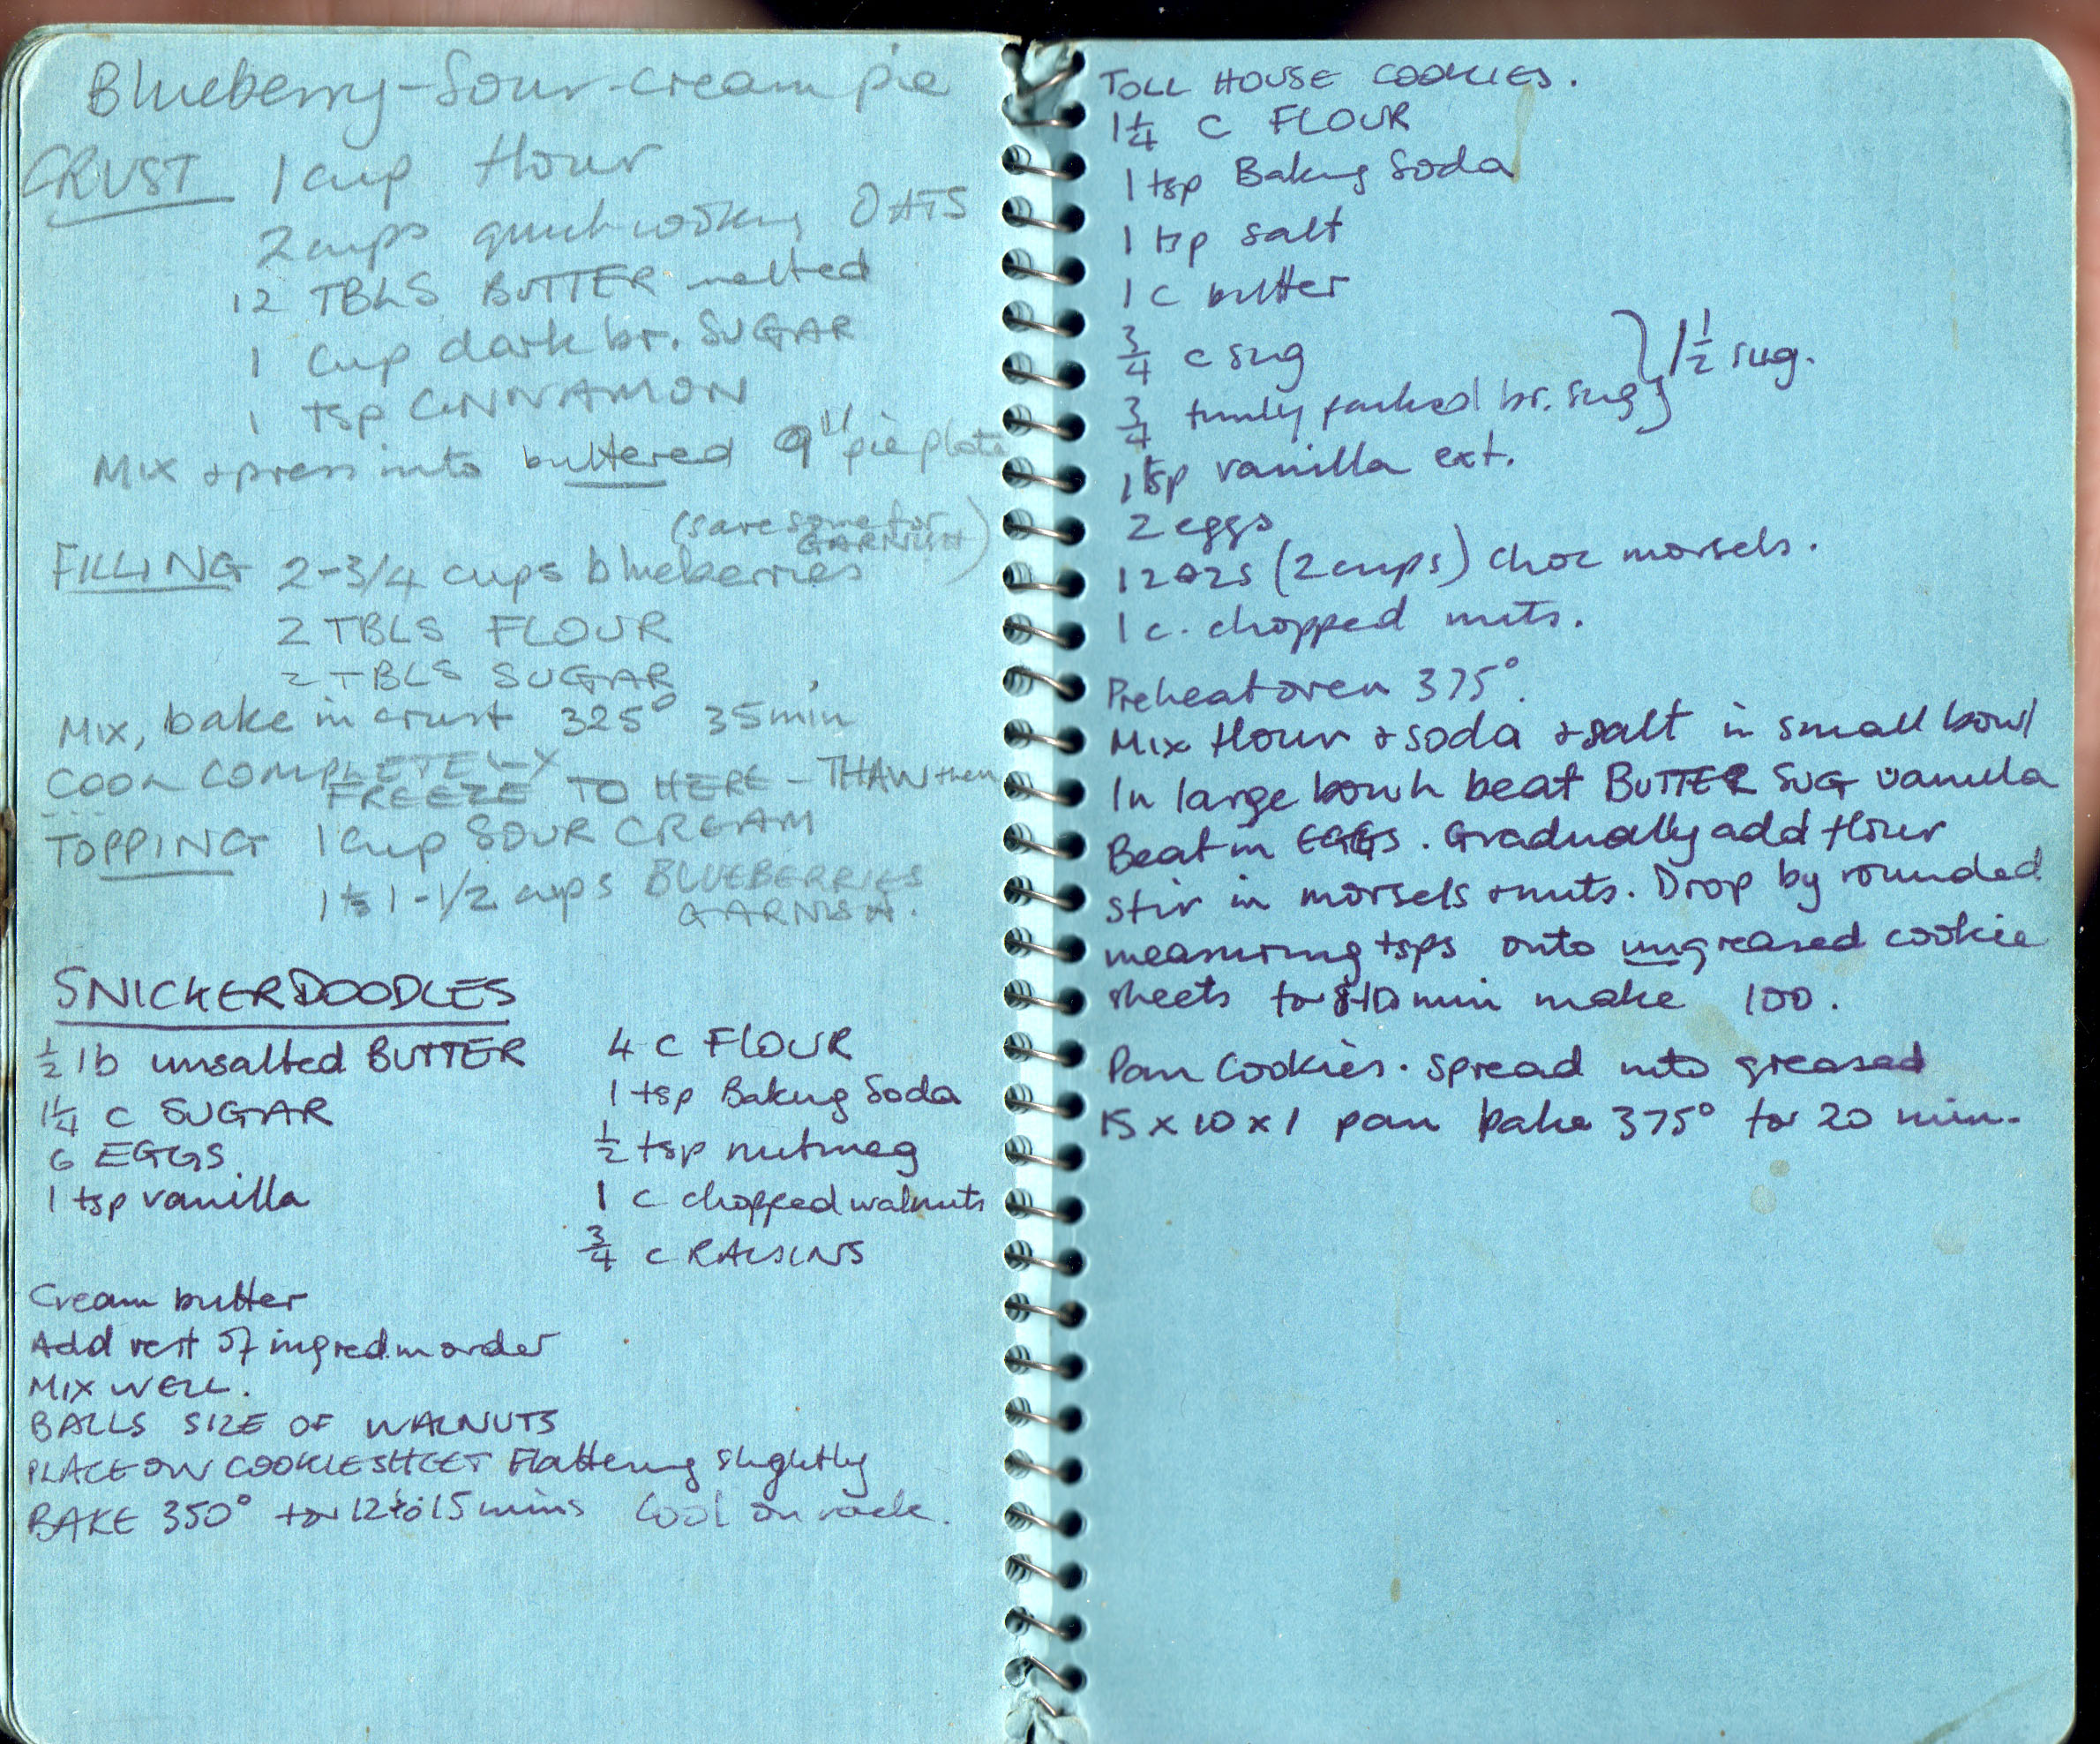 Blueberry-Sour-cream pie
CRUST 1 cup flour
2 cups quick cooking OATS
12 TBLS BUTTER melted
1 cup dark br. SUGAR
1 tsp CINNAMON
Mix + press into buttered 9" pie plate
(save some for
GARNISH)
FILLING 2-3/4 cups blueberries
2 TBLS FLOUR
2 TBLS SUGAR
Mix, bake in crust 325° 35 min
COOL COMPLETELY
FREEZE TO HERE - THAW then
TOPPING 1 cup SOUR CREAM
1 to 1-1/2 cups BLUEBERRIES
GARNISH.
SNICKERDOODLES
½ lb unsalted BUTTER
1¼ c SUGAR
6 EGGS
1 tsp vanilla
4 c FLOUR
1 tsp Baking Soda
½ tsp nutmeg
1 c chopped walnuts
¾ c RAISINS
Cream butter
Add rest of ingred. in order
MIX WELL.
BALLS SIZE OF WALNUTS
PLACE ON COOKIE SHEET Flattening slightly
BAKE 350° for 12 to 15 mins Cool on rack.
TOLL HOUSE COOKIES.
1¼ C FLOUR
1 tsp Baking Soda
1 tsp salt
1 c butter
¾ c sug
¾ firmly packed br. sug } 1½ sug.
1 tsp vanilla ext.
2 eggs
12 ozs (2 cups) choc morsels.
1 c. chopped nuts.
Preheat oven 375°.
Mix flour + soda + salt in small bowl
In large bowl beat BUTTER SUG vanilla
Beat in EGGS. Gradually add flour
stir in morsels + nuts. Drop by rounded
measuring tsps onto ungreased cookie
sheets for 8-10 min make 100.
Pan Cookies. Spread into greased
15 x 10 x 1 pan bake 375° for 20 min.